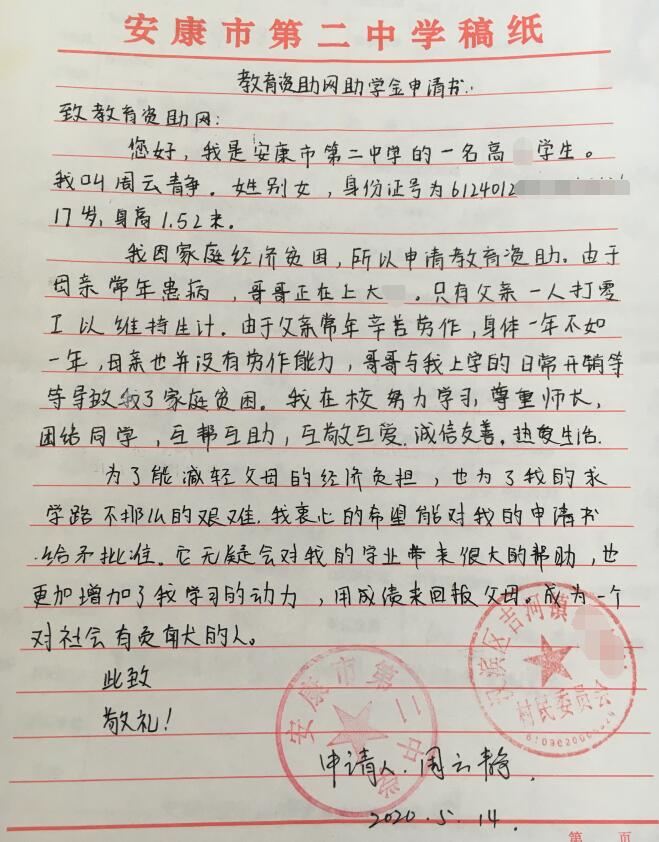 安康市第二中学稿纸
教育资助网助学金申请书.
致教育资助网:
您好，我是安康市第二中学的一名高 学生。
我叫周云静。姓别女，身份证号为6124012
17岁，身高1.52米。
我因家庭经济贫困，所以申请教育资助。由于
母亲常年患病，哥哥正在上大 。只有父亲一人打零
工以维持生计。由于父亲常年辛苦劳作，身体一年不如
一年，母亲也并没有劳作能力，哥哥与我上学的日常开销等
等导致 了家庭贫困。我在校努力学习，尊重师长，
团结同学，互帮互助，互敬互爱.诚信友善。热爱生活.
为了能减轻父母的经济负担，也为了我的求
学路不那么的艰难.我衷心的希望能对我的申请书
给予批准。它无疑会对我的学业带来很大的帮助，也
更加增加了我学习的动力，用成绩来回报父母。成为一个
对社会有贡献的人。
此致
敬礼!
汉滨区吉河镇
村民委员会
安康市第二中学
申请人:周云静.
2020.5.14.
第 页